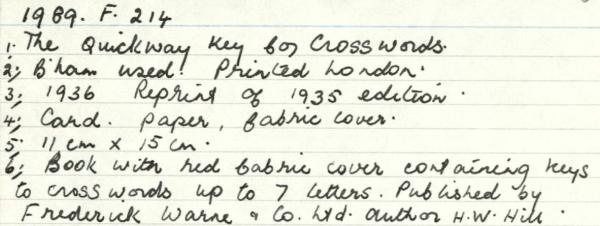 1989. F. 214
1. The Quickway Key for Crosswords.
2; B'ham used. Printed London.
3; 1936 Reprint of 1935 edition.
4; Card. paper, fabric cover.
5. 11 cm x 15 cm.
6; Book with red fabric cover containing keys
to crosswords up to 7 letters. Published by
Frederick Warne & Co. Ltd. Author H.W. Hill.